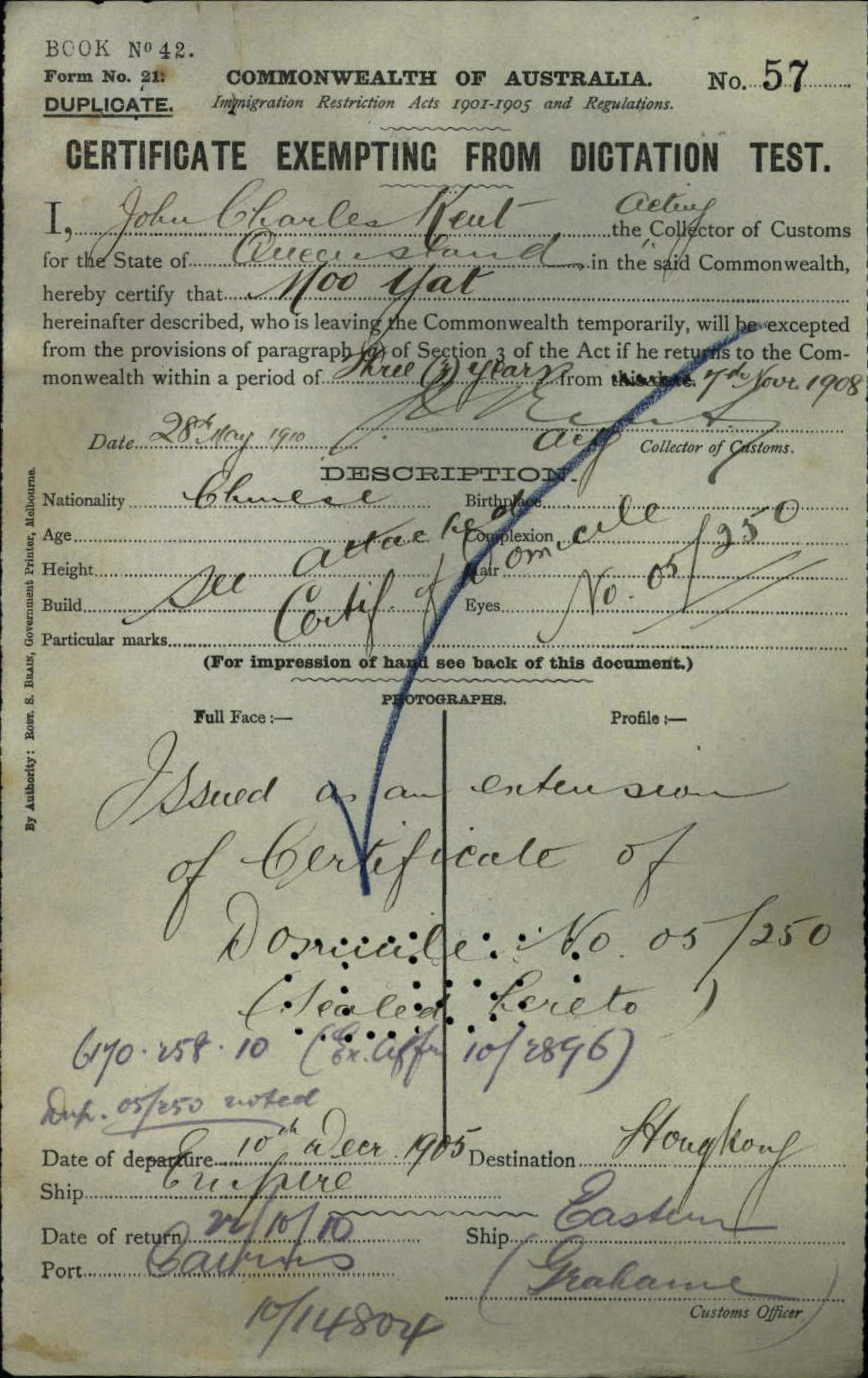 BOOK Nº 42.
Form No. 21.
COMMONWEALTH OF AUSTRALIA.
No. 57
DUPLICATE.
Immigration Restriction Acts 1901-1905 and Regulations.
CERTIFICATE EXEMPTING FROM DICTATION TEST.
I, John Charles Kent Acting the Collector of Customs
for the State of Queensland in the said Commonwealth,
hereby certify that Moo Yat
hereinafter described, who is leaving the Commonwealth temporarily, will be excepted
from the provisions of paragraph (a) of Section 3 of the Act if he returns to the Com-
monwealth within a period of three (3) years from this date. 7th Novr. 1908
Date 28th May 1910
Actg Collector of Customs.
DESCRIPTION.
Nationality Chinese Birthplace
Age Complexion
Height Hair
Build Eyes
See attached Certif. of Domicile No. 05/250
Particular marks
(For impression of hand see back of this document.)
PHOTOGRAPHS.
Full Face :— Profile :—
Issued as an extension
of Certificate of
Domicile No. 05/250
(Sealed hereto)
10/2896)
Dup. 05/250 noted
Date of departure 10th Decr 1905 Destination Hongkong
Ship Empire
Date of return 22/10/10 Ship Eastern
Port Cairns
Grahame
Customs Officer
10/14804
By Authority: ROBT. S. BRAIN, Government Printer, Melbourne.